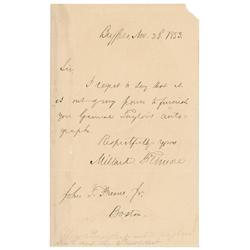 Buffalo, Nov. 28. 1853.
Sir
I regret to say that it
is out my power to furnish
you General Taylor's auto-
graph.
Respectfully yours
Millard Fillmore
John T. Jr.
Boston.